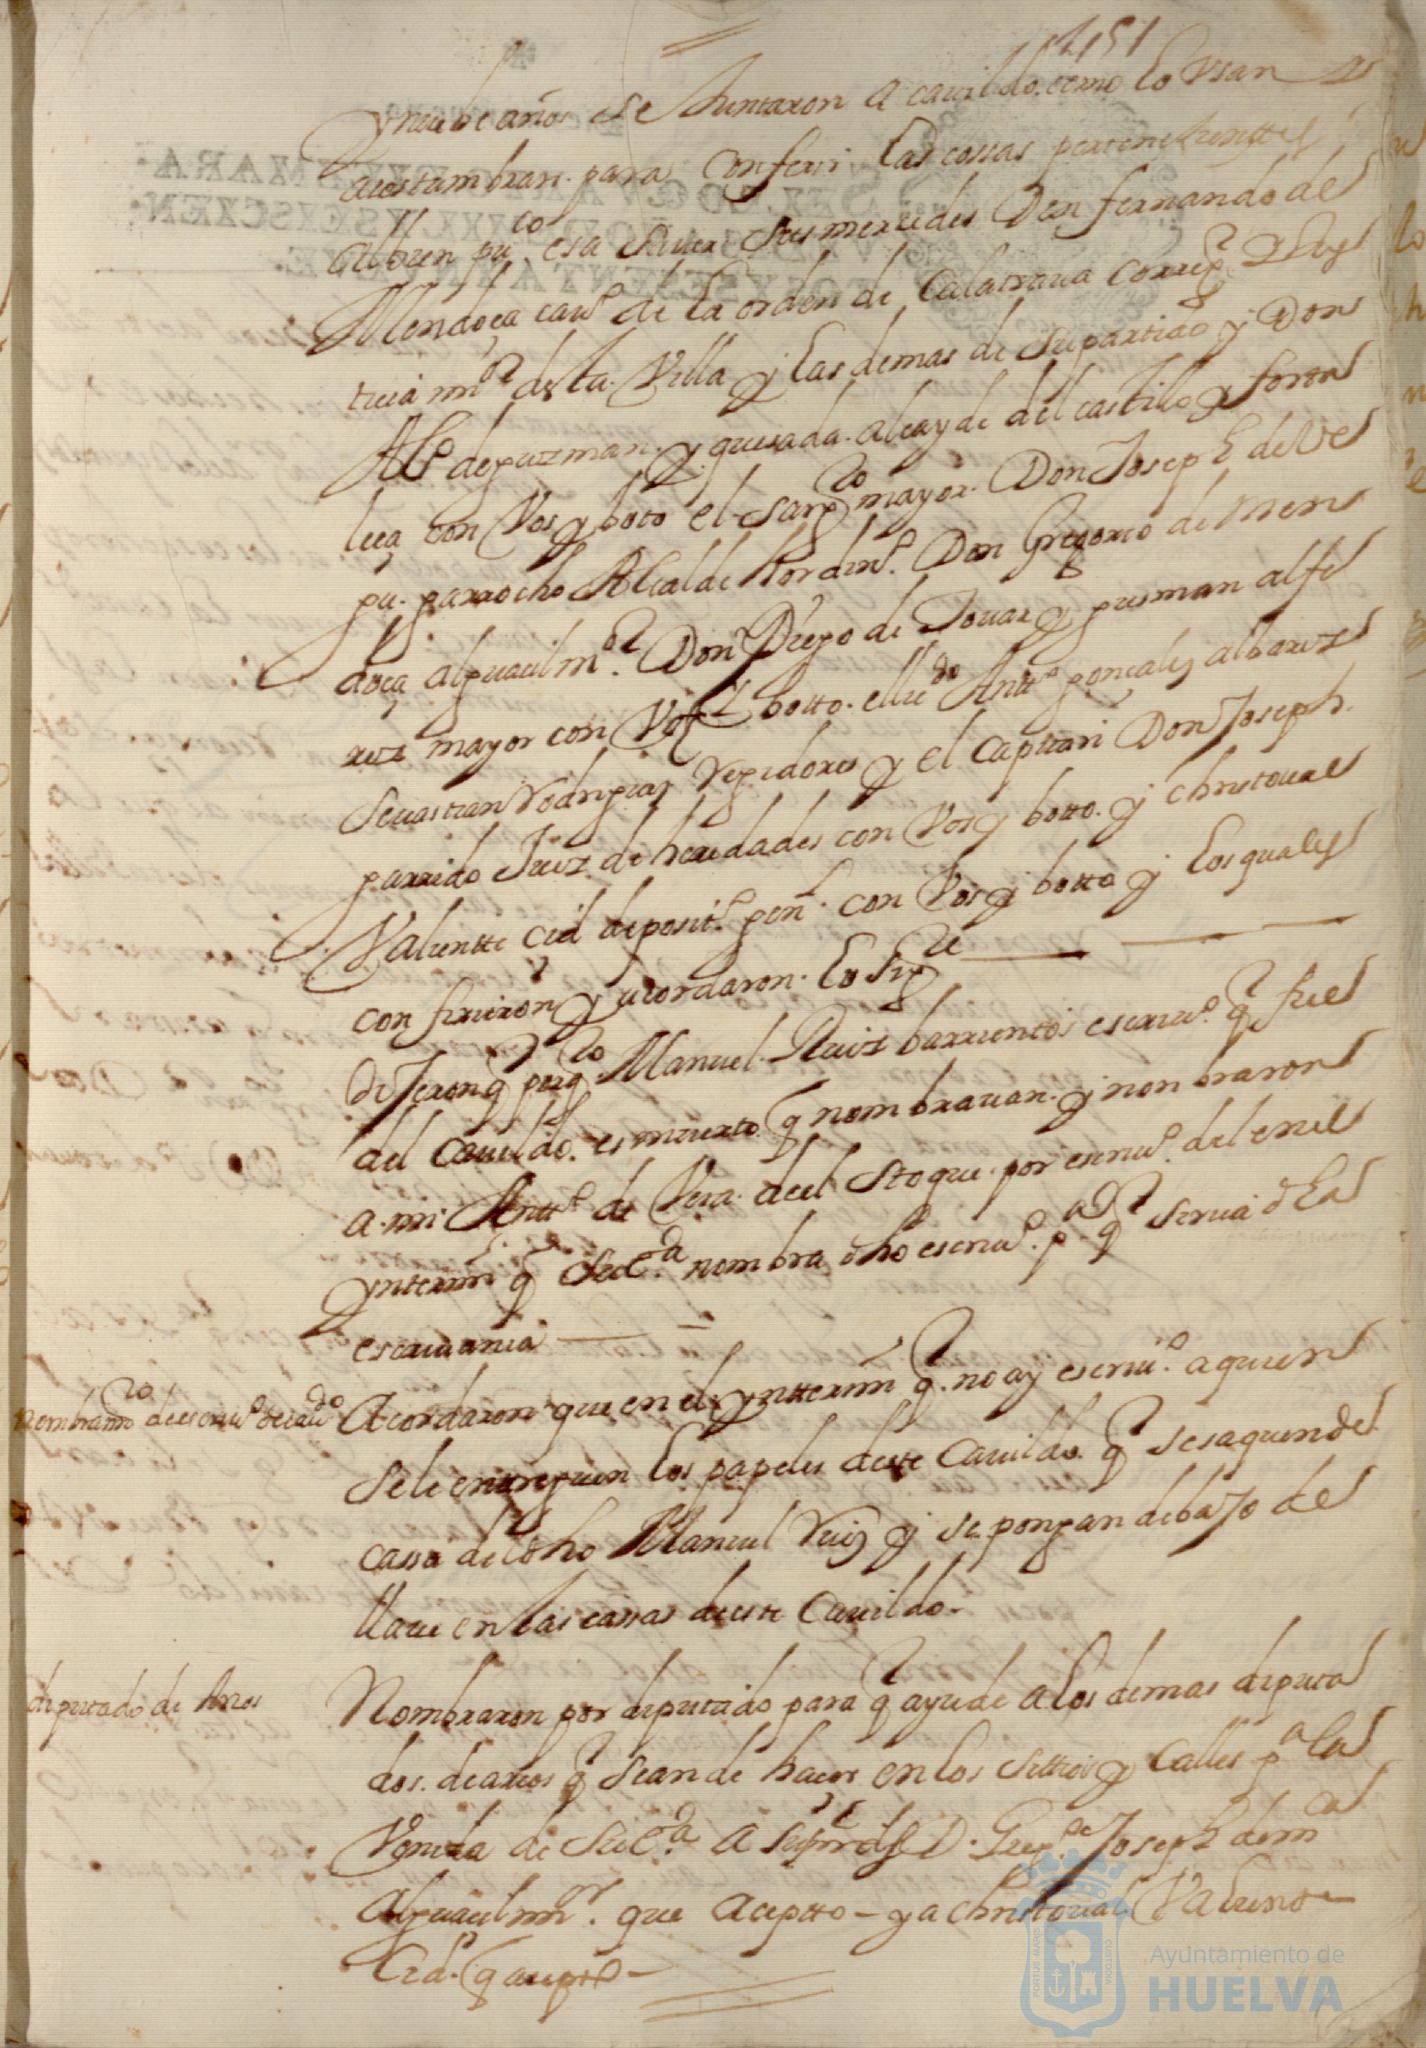 451
y nuebe años se Juntaron a cauildo como lo Usan y
acostumbran para Conferir las cossas pertenesientes
al buen pu.co es a sauer sus mercedes Don fernando de
Mendoça cau.o de la orden de Calatraua Correg.r y Jus
ticia m.or desta Villa y las demas de su partido y Don
Al.o de guzman y quesada alcayde del castillo y forta
leça con Vos y boto el sarg.to mayor Don Joseph de Ve
ga garrocho Alcalde hordin.o Don Gregorio de Men
doça alguacil m.or Don Diego de Touar y gusman alfe
rez mayor con Vos y botto el liz.do Antt.o gonçales albarez
Seuastian Rodriguez Regidores y el Capitan Don Joseph
garrido Juez de heredades con Vos y botto y christoual
Valiente Cid deposit.o gen.l con Vos y botto y los quales
confirieron y acordaron lo sig.te
dijeron q por q.to Manuel Ruiz barrientos escriu.o q fue
del Cauildo es muerto q nombrauan y nonbraron
a mi Antt.o de Vera del Stoque por escriu.o del en el
ynterin q su Ex.a nombra dho escriu.o p.a q sirua dha
escriuania
nombram.to de escriu.o de cau.do
Acordaron que en el yntterin q no ay escriu.o a quien
se le entreguen los papeles deste Cauildo q se saquen de
cassa del dho Manuel Ruiz y se pongan debajo de
llaue en las cassas deeste Cauildo
diputado de Arcos
Nombraron por diputado para q ayude a los demas diputa
dos de arcos q se an de hacer en los sittios y Calles p.a la
Venida de su Ex.a a su md D. Greg.o Joseph de m.ca
alguacil m.or que aceptto y a Christoual Valiente
Cid q acepto
Ayuntamiento de
HUELVA